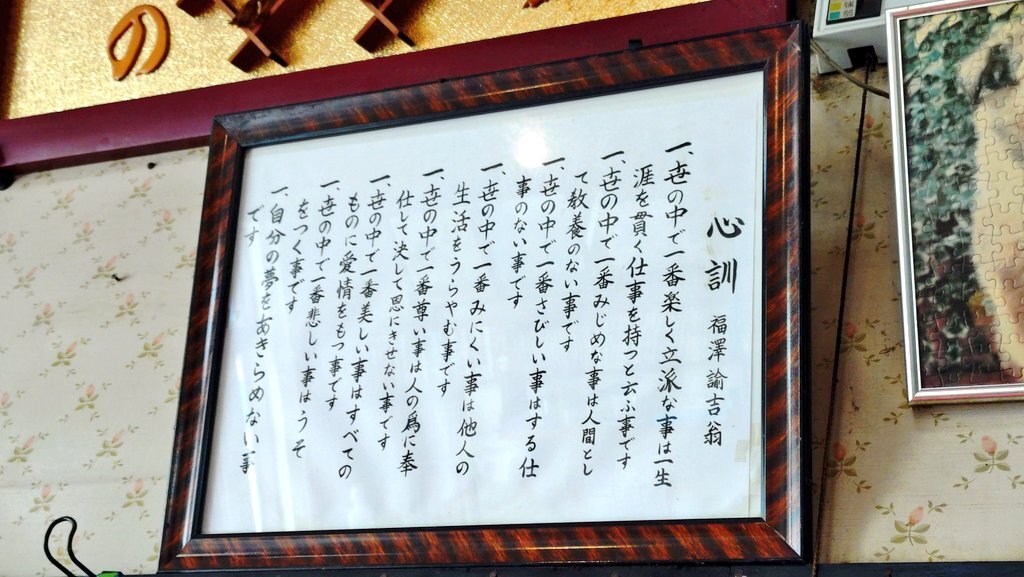 の
強
弱
心訓 福澤諭吉翁
一、世の中で一番楽しく立派な事は一生
涯を貫く仕事を持つと云ふ事です
一、世の中で一番みじめな事は人間とし
て教養のない事です
一、世の中で一番さびしい事はする仕
事のない事です
一、世の中で一番みにくい事は他人の
生活をうらやむ事です
一、世の中で一番尊い事は人の爲に奉
仕して決して恩にきせない事です
一、世の中で一番美しい事はすべての
ものに愛情をもつ事です
一、世の中で一番悲しい事はうそ
をつく事です
一、自分の夢をあきらめない事
です